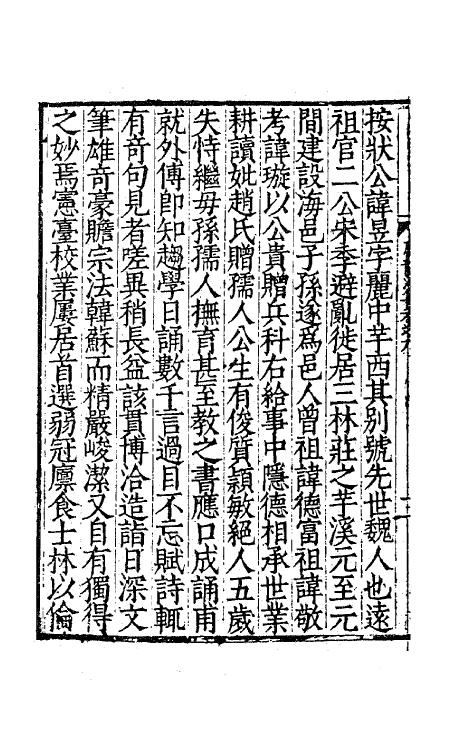 按狀公諱昱字麗中芋西其別號先世魏人也遠
祖官二公宋季避亂徙居三林莊之芋溪元至元
間建設海邑子孫遂爲邑人曾祖諱德富祖諱敬
考諱璇以公貴贈兵科右給事中隱德相承世業
耕讀妣趙氏贈孺人公生有俊質穎敏絕人五歲
失恃繼母孫孺人撫育甚至教之書應口成誦甫
就外傅即知趨學日誦數千言過目不忘賦詩輒
有奇句見者嗟異稍長益該貫博洽造詣日深文
筆雄奇豪贍宗法韓蘇而精嚴峻潔又自有獨得
之妙焉憲臺校業屢居首選弱冠廩食士林以倫